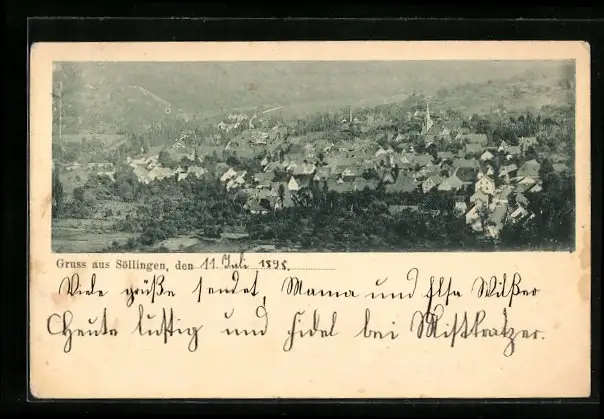 Gruss aus Söllingen, den 11. Juli 1898.
Viele größe sendet, Mama und Elsa Wilßer
Heute lustig und fidel bei Mistkratzer.